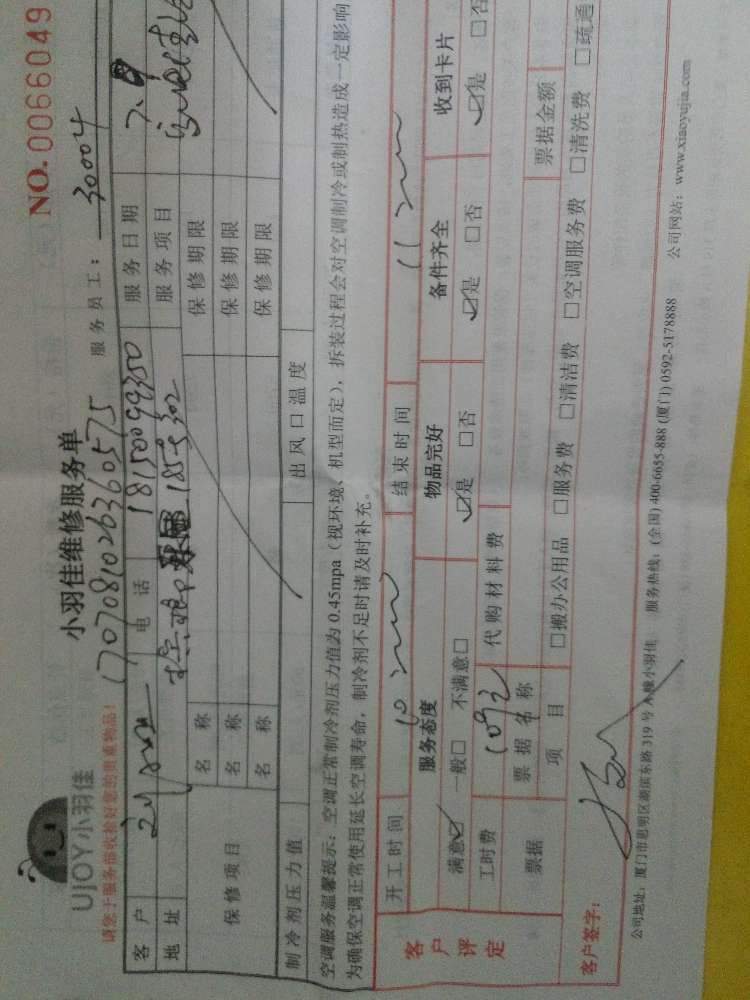 UJOY小羽佳
小羽佳维修服务单
NO.0066049
请您于服务前收拾好您的贵重物品!
1707081026360575
服务员工: 30004
客户
电话 18150099350
服务日期 7.9
地址
185号302
服务项目
保修项目
名称
保修期限
名称
保修期限
名称
保修期限
制冷剂压力值
出风口温度
空调服务温馨提示:空调正常制冷剂压力值为0.45mpa(视环境、机型而定),拆装过程会对空调制冷或制热造成一定影响
为确保空调正常使用延长空调寿命,制冷剂不足时请及时补充。
客户评定
开工时间 10
结束时间 11
服务态度
物品完好
备件齐全
收到卡片
满意☑ 一般□ 不满意□
☑是 □否
☑是 □否
☑是 □否
工时费
代购材料费
票据
票据名称
票据金额
项目
□搬办公用品 □服务费 □清洁费 □空调服务费 □清洗费 □疏通
客户签字:
公司地址:厦门市思明区湖滨东路319号A幢小羽佳 服务热线:(全国)400-6655-888 (厦门)0592-5178888 公司网站:www.xiaoyujia.com